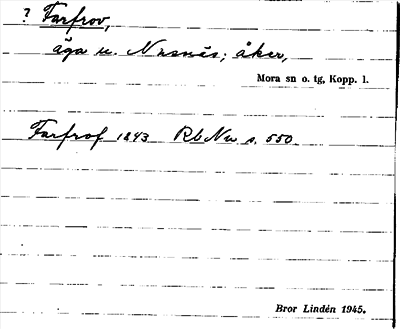 ? Farfrov,
äga u. Nusnäs; åker,
Mora sn o. tg, Kopp. l.
Farfrof 1843 RbNu s. 550
Bror Lindén 1945.